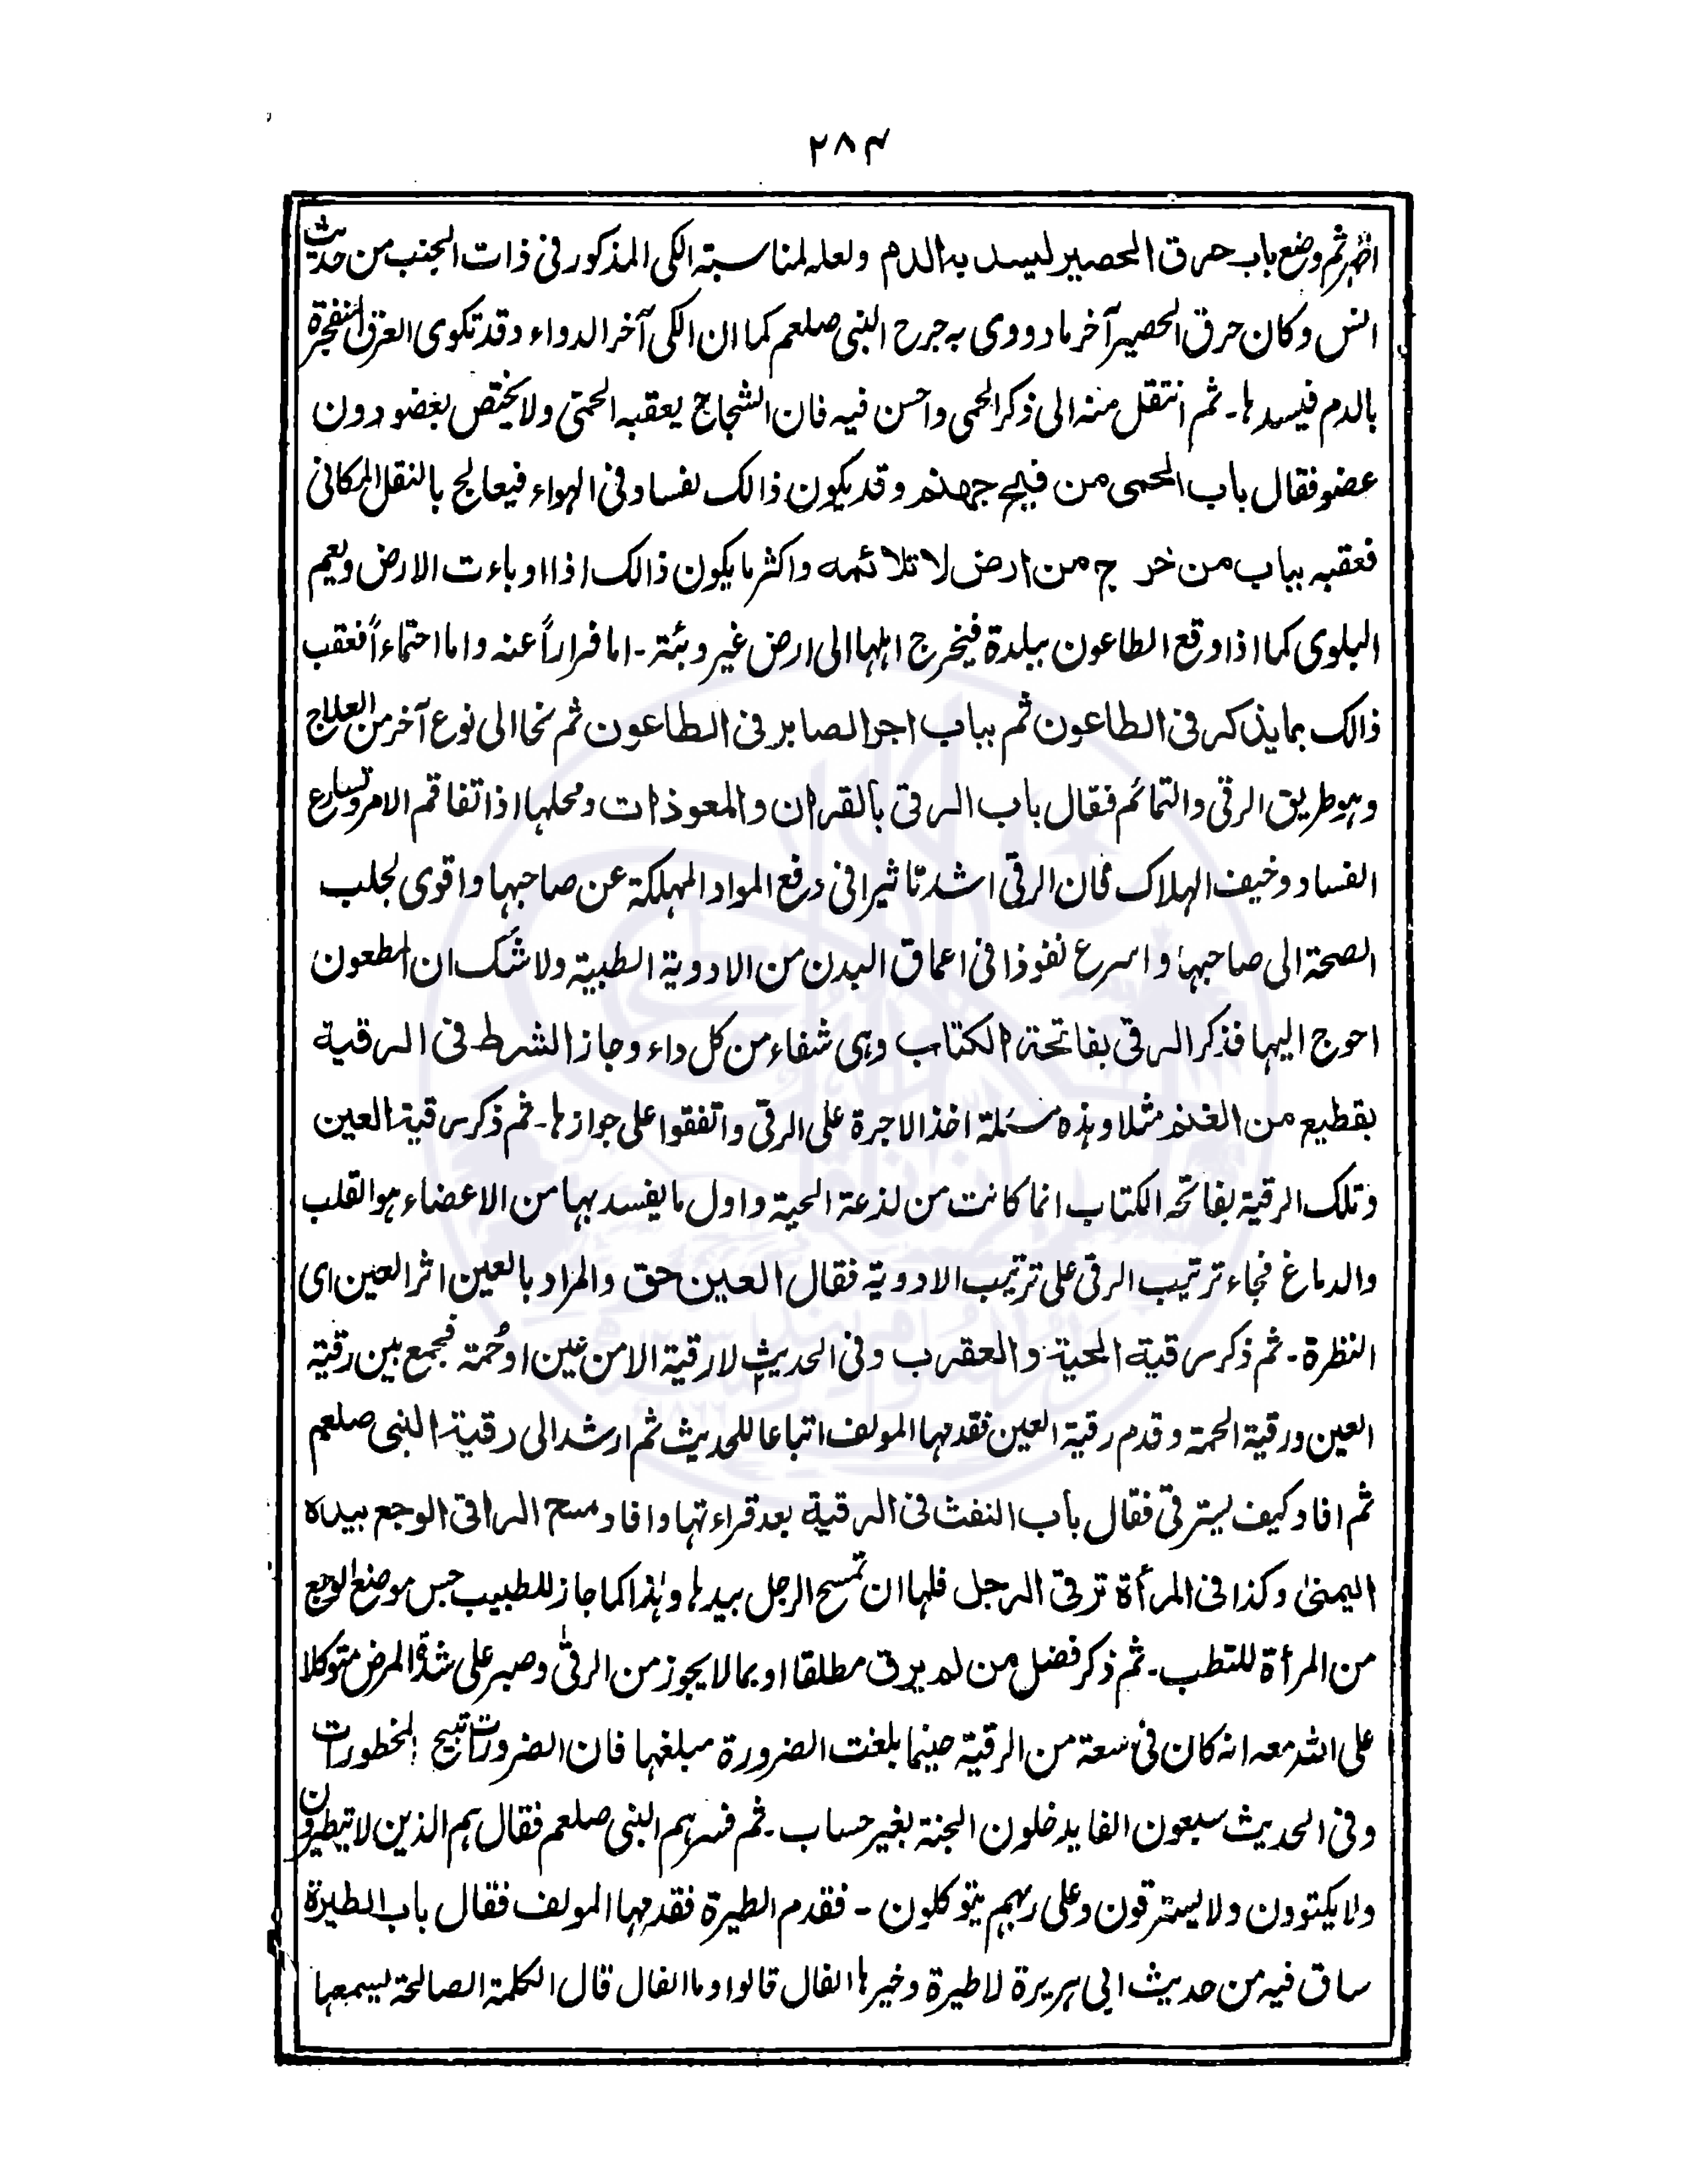 ۲۸۴
اظہر ثم وضع باب حرق الحصیر لیسد بہ الدم ولعلہ لمناسبتہ الکی المذکور فی ذات الجنب من حدیث
انس وکان حرق الحصیر آخر ما دووی بہ جرح النبی صلعم کما ان الکی آخر الدواء وقد تکوی العرق المنفجرة
بالدم فیسدہا۔ ثم انتقل منہ الی ذکر الحمی واحسن فیہ فان الشجاج یعقبہ الحمی ولا یختص بعضو دون
عضو فقال باب الحمی من فیح جھنم وقد یکون ذالک لفساد فی الہواء فیعالج بالنقل المکانی
فعقبہ بباب من خرج من ارض لا تلائمہ واکثر ما یکون ذالک اذا اوباءت الارض ویعم
البلوی کما اذا وقع الطاعون ببلدة فیخرج اہلہا الی ارض غیر وبئة۔ اما فراراً عنہ واما احتماءاً فعقب
ذالک بما یذکر فی الطاعون ثم بباب اجر الصابر فی الطاعون ثم نحا الی نوع آخر من العلاج
وہو طریق الرقی والتمائم فقال باب الرقی بالقران والمعوذات ومحلہا اذا تفاقم الامر وتسارع
الفساد وخیف الہلاک فان الرقی اشد تاثیرا فی دفع المواد المہلکة عن صاحبہا واقوی لجلب
الصحة الی صاحبہا واسرع نفوذا فی اعماق البدن من الادویة الطبیة ولا شک ان المطعون
احوج الیہا فذکر الرقی بفاتحة الکتاب وہی شفاء من کل داء وجاز الشرط فی الرقیة
بقطیع من الغنم مثلا وہذہ مسئلة اخذ الاجرة علی الرقی واتفقوا علی جوازہا۔ ثم ذکر رقیة العین
وتلک الرقیة بفاتحہ الکتاب انما کانت من لذعة الحیة واول ما یفسد بہا من الاعضاء ہو القلب
والدماغ فجاء ترتیب الرقی علی ترتیب الادویة فقال العین حق والمراد بالعین اثر العین ای
النظرة۔ ثم ذکر رقیة الحیة والعقرب وفی الحدیث لا رقیة الا من عین او حُمة فجمع بین رقیة
العین ورقیة الحمة وقدم رقیة العین فقدمہا المولف اتباعا للحدیث ثم ارشد الی رقیة النبی صلعم
ثم افاد کیف یسترقی فقال باب النفث فی الرقیة بعد قراءتہا وافاد مسح الراقی الوجع بیدہ
الیمنیٰ وکذا فی المرأة ترقی الرجل فلہا ان تمسح الرجل بیدہا وہٰذا کما جاز للطبیب جس موضع الوجع
من المرأة للتطب۔ ثم ذکر فضل من لم یرق مطلقا او بما لا یجوز من الرقیٰ وصبر علی شدة المرض متوکلا
علی اللہ معہ انہ کان فی سعة من الرقیة حینما بلغت الضرورة مبلغہا فان الضرورات تبیح المحظورات
وفی الحدیث سبعون الفا یدخلون الجنة بغیر حساب۔ ثم فسرہم النبی صلعم فقال ہم الذین لا یتطیرون
ولا یکتوون ولا یسترقون وعلی ربہم یتوکلون ۔ فقدم الطیرة فقدمہا المولف فقال باب الطیرة
ساق فیہ من حدیث ابی ہریرة لا طیرة وخیرہا الفال قالوا وما الفال قال الکلمة الصالحة یسمعہا